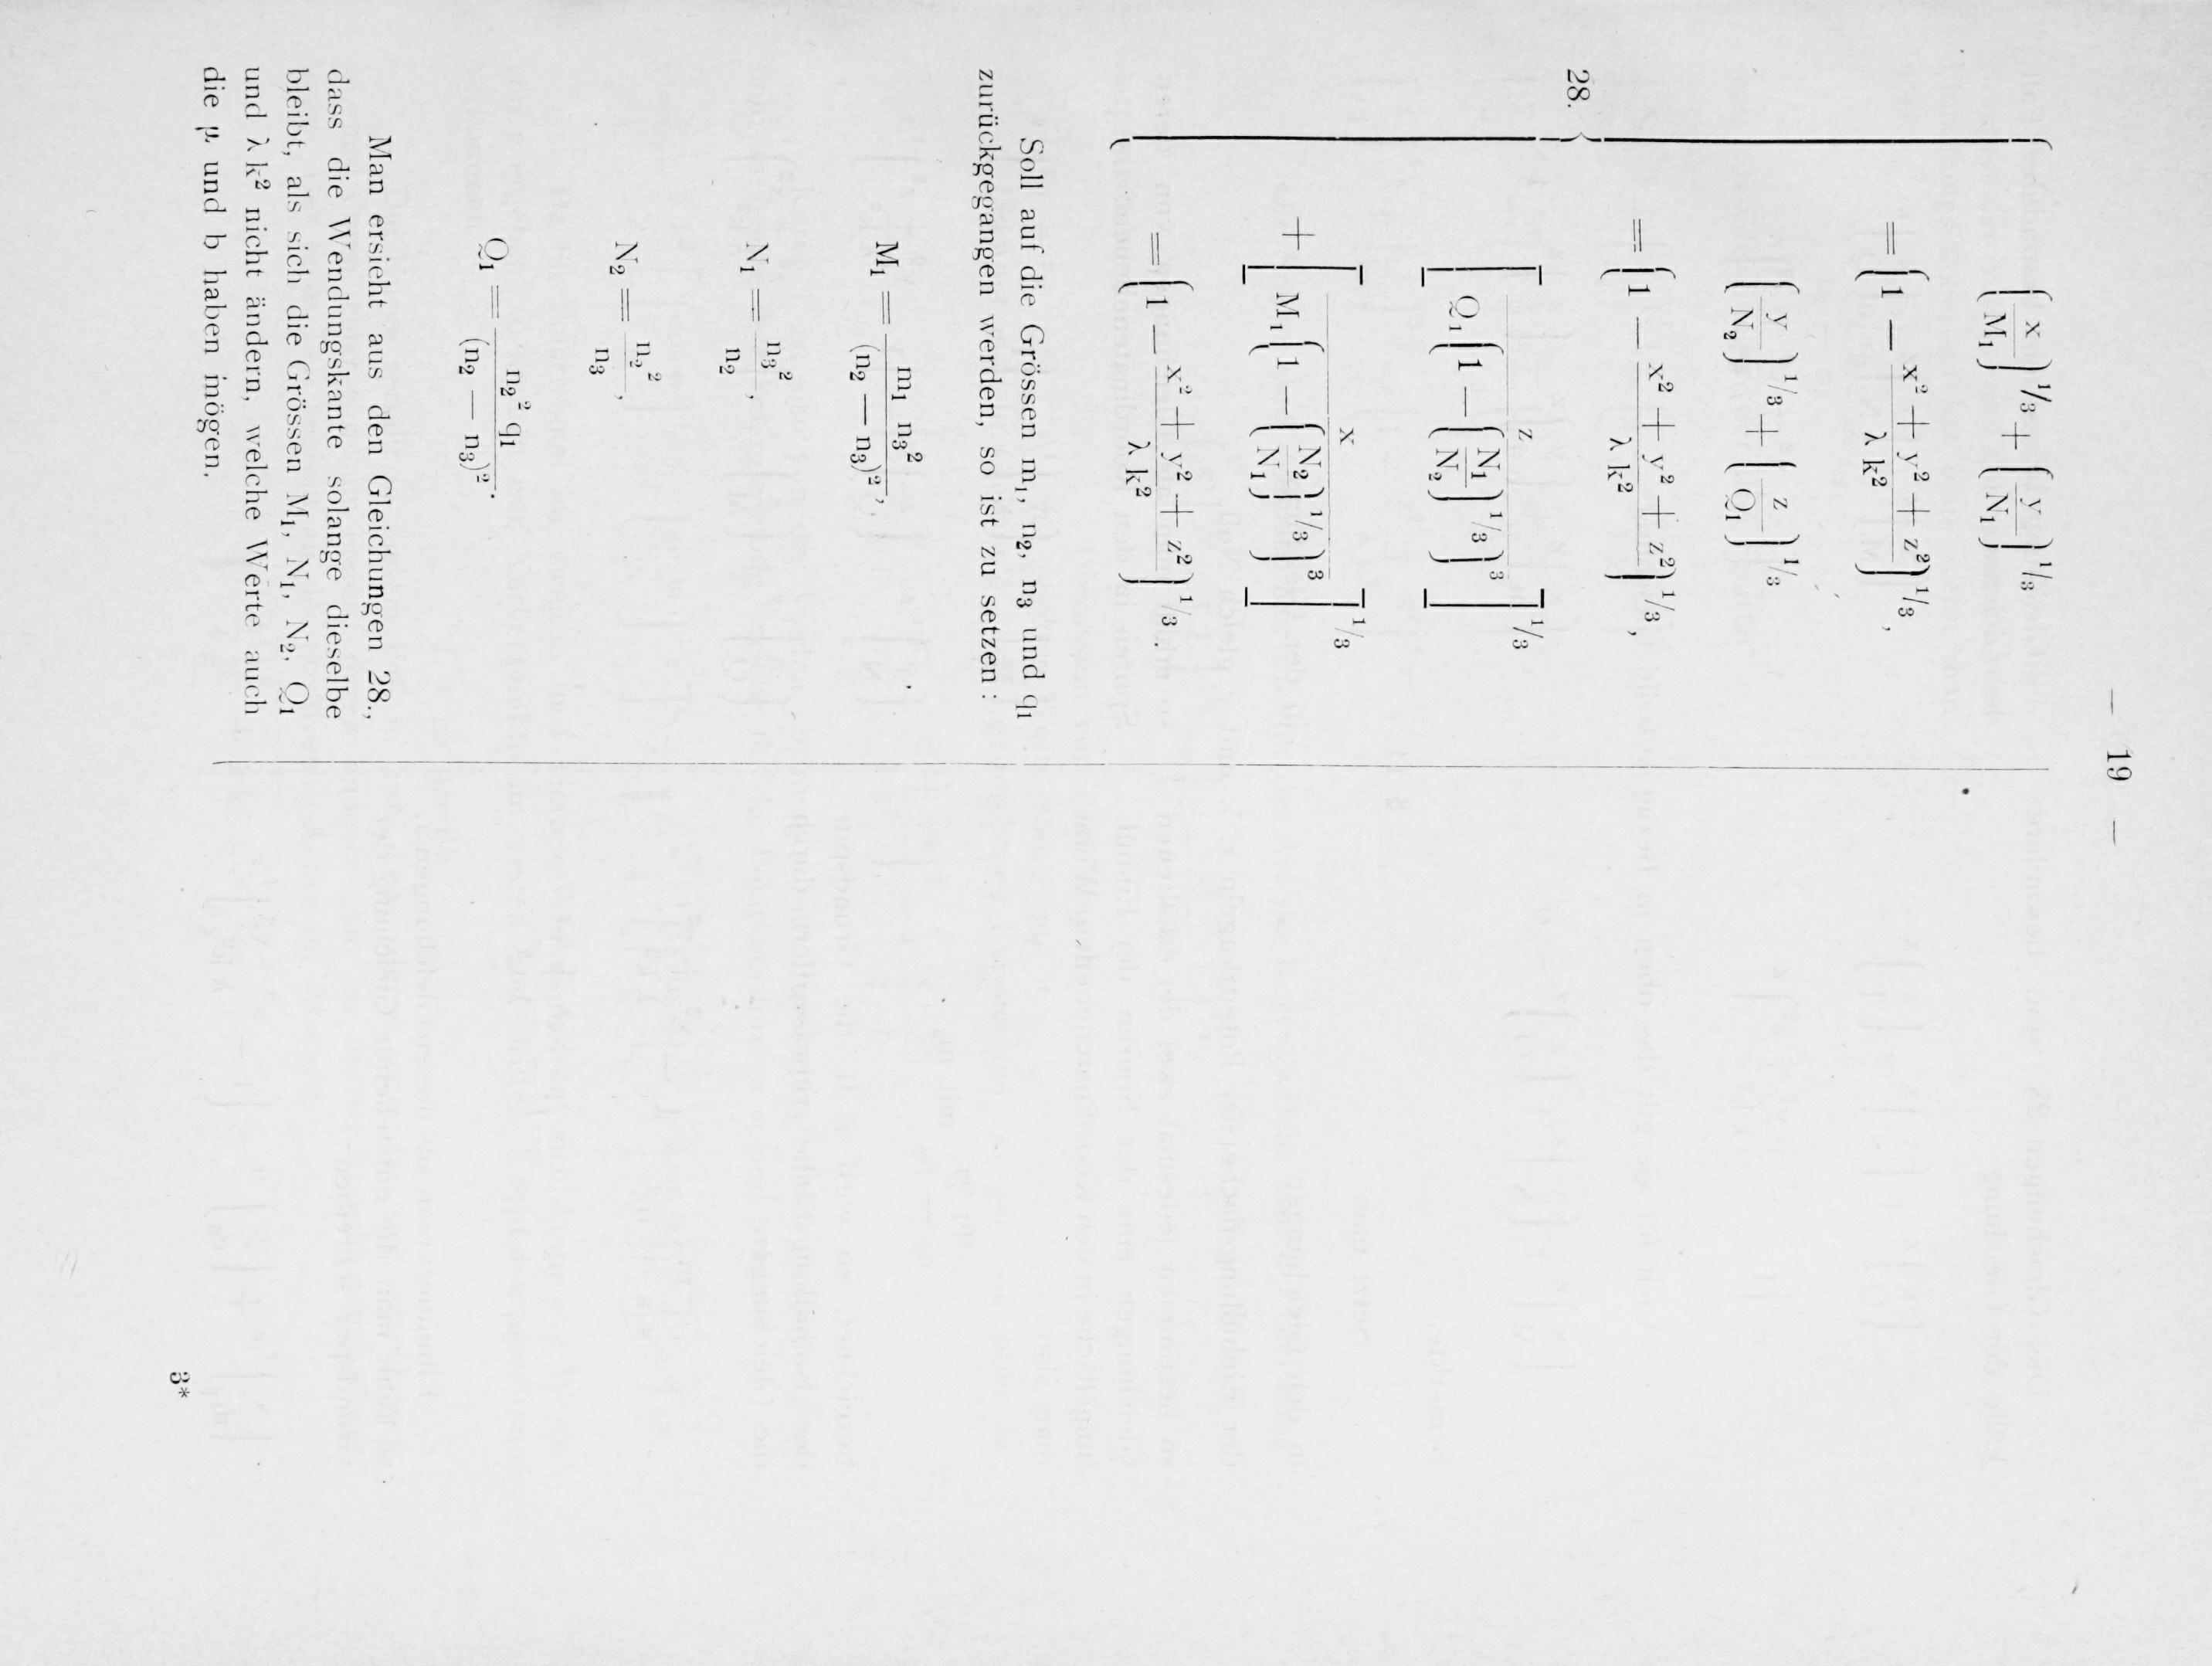 — 19 —
28.
(x/M₁)^1/3 + (y/N₁)^1/3
= (1 — (x² + y² + z²)/(λ k²))^1/3,
(y/N₂)^1/3 + (z/Q₁)^1/3
= (1 — (x² + y² + z²)/(λ k²))^1/3,
[z/(Q₁(1 — (N₁/N₂)^1/3)^3)]^1/3
+ [x/(M₁(1 — (N₂/N₁)^1/3)^3)]^1/3
= (1 — (x² + y² + z²)/(λ k²))^1/3.
Soll auf die Grössen m₁, n₂, n₃ und q₁
zurückgegangen werden, so ist zu setzen:
M₁ = m₁ n₃²/(n₂ — n₃)²,
N₁ = n₃²/n₂,
N₂ = n₂²/n₃,
Q₁ = n₂² q₁/(n₂ — n₃)².
Man ersieht aus den Gleichungen 28.,
dass die Wendungskante solange dieselbe
bleibt, als sich die Grössen M₁, N₁, N₂, Q₁
und λ k² nicht ändern, welche Werte auch
die μ und b haben mögen.
3*